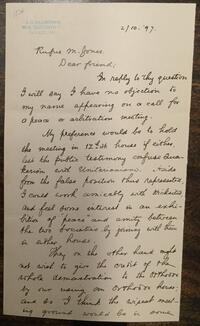 2/10.'97.
Rufus M. Jones.
Dear friend;
In reply to thy question
I will say I have no objection to
my name appearing on a call for
a peace or arbitration meeting.
My preference would be to hold
the meeting in 12th St house if either,
lest the public testimony confuse Quak-
erism with Unitarianism. Aside
from the false position thus represented
I could work amicably with Hicksites
and feel some interest in an exhi-
bition of "peace" and amity between
the two branches by joining with them
in either house.
They on the other hand might
not wish to give the credit of the
whole demonstration to the Orthodox
by our using an Orthodox house;
and so I think the wisest meet-
ing ground would be in some